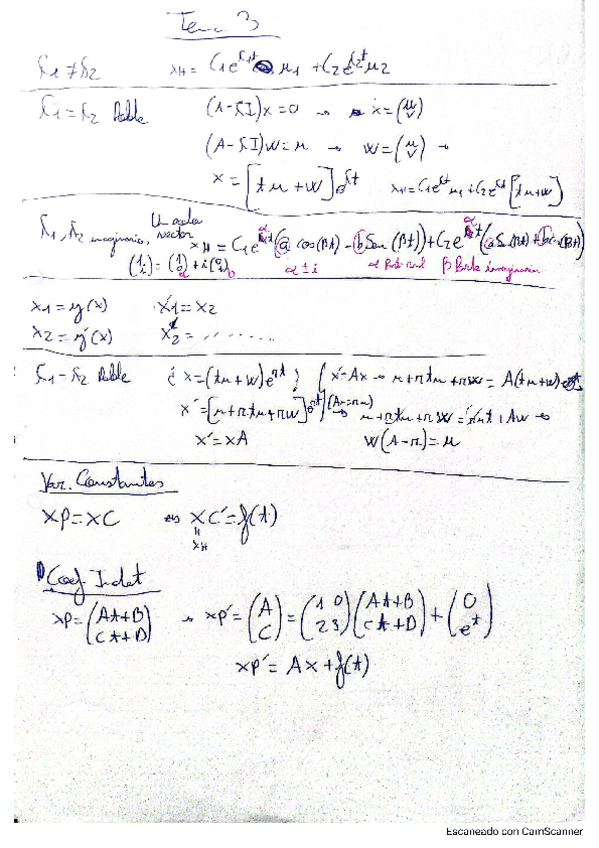 Tema 3
λ1 ≠ λ2 xH = C1e^λ1t · μ1 + C2e^λ2t μ2
λ1 = λ2 Doble (A-λI)x=0 → x=(μ v)
(A-λI)w=μ → w=(μ v) →
x=[tμ+w]e^λt xH=C1e^λt μ1+C2e^λt[tμ+w]
λ1, λ2 imaginario, Un autovector
xH = C1e^αt(a cos(βt) - b Sen(βt)) + C2e^αt(a Sen(βt) + b cos(βt))
(1 i) = (1 0) + i(0 1) a b α ± i α Parte real β Parte imaginaria
x1 = y(x) x1' = x2
x2 = y'(x) x2' = ........
λ1 = λ2 Doble ¿ x=(tμ+w)e^rt ? x'=Ax → μ+rtμ+rw = A(tμ+w)
x'=[μ+rtμ+rw]e^rt (Aμ=rμ) → μ+rtμ+rw = rμt+Aw →
x'=xA w(A-r)=μ
Var. Constantes
xP=xC ⇔ xC'=f(t)
"
xH
Coef. Indet
xP=(At+B Ct+D) → xP'=(A C)=(1 0 2 3)(At+B Ct+D)+(0 e^t)
xP'=Ax+f(t)
Escaneado con CamScanner